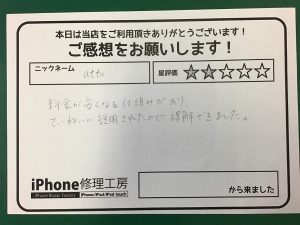 本日は当店をご利用頂きありがとうございます!
ご感想をお願いします!
ニックネーム
atto
星評価
料金が安くなる仕組みがあり
ていねいに説明されたので理解できました。
iPhone修理工房
iPhone Repair Factory
iPhone/iPad/iPod touch
から来ました